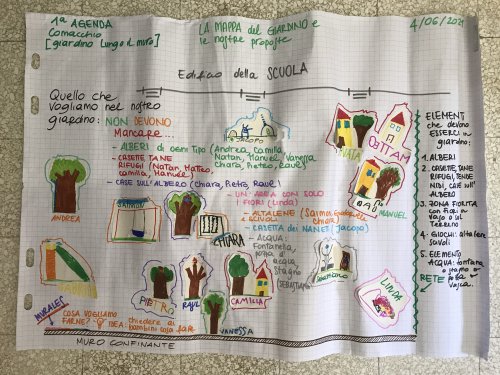 1ª AGENDA
Comacchio
[giardino lungo il muro]
LA MAPPA del GIARDINO e
le nostre proposte
4/06/2021
Edificio della SCUOLA
Quello che
vogliamo nel nostro
giardino: NON DEVONO
Mancare...
- ALBERI di ogni tipo (Andrea, Camilla
Natan, Manuel, Vanessa
Chiara, Pietro, Raul)
- CASETTE, TANE
RIFUGI (Natan, Matteo,
camilla, Manuel)
- CASE SULL'ALBERO (Chiara, Pietro, Raul)
- UN'AREA CON SOLO
I FIORI (Linda)
- ALTALENE
SCIVOLI
chiara)
- CASETTA dei NANI (Jacopo)
- ACQUA:
Fontanella,
pozza d'
acqua,
stagno
SEBASTIANO
JACOPO
MANUEL
ANDREA
CHIARA
PIETRO
RAUL
CAMILLA
VANESSA
LINDA
MURALES
COSA VOGLIAMO
FARNE? IDEA: chiedere ai
bambini cosa fare
MURO CONFINANTE
ELEMENTI
che devono
ESSERCI in
giardino:
1. ALBERI
2. CASETTE, TANE
RIFUGI, TENDE
NIDI, CASE SULL'
ALBERO
3. ZONA FIORITA
con fiori a
vaso o sul
terreno
4. GIOCHI: altalene
scivoli
5. ELEMENTO
ACQUA: fontana
o stagno o
pozza o
vasca.
RETE